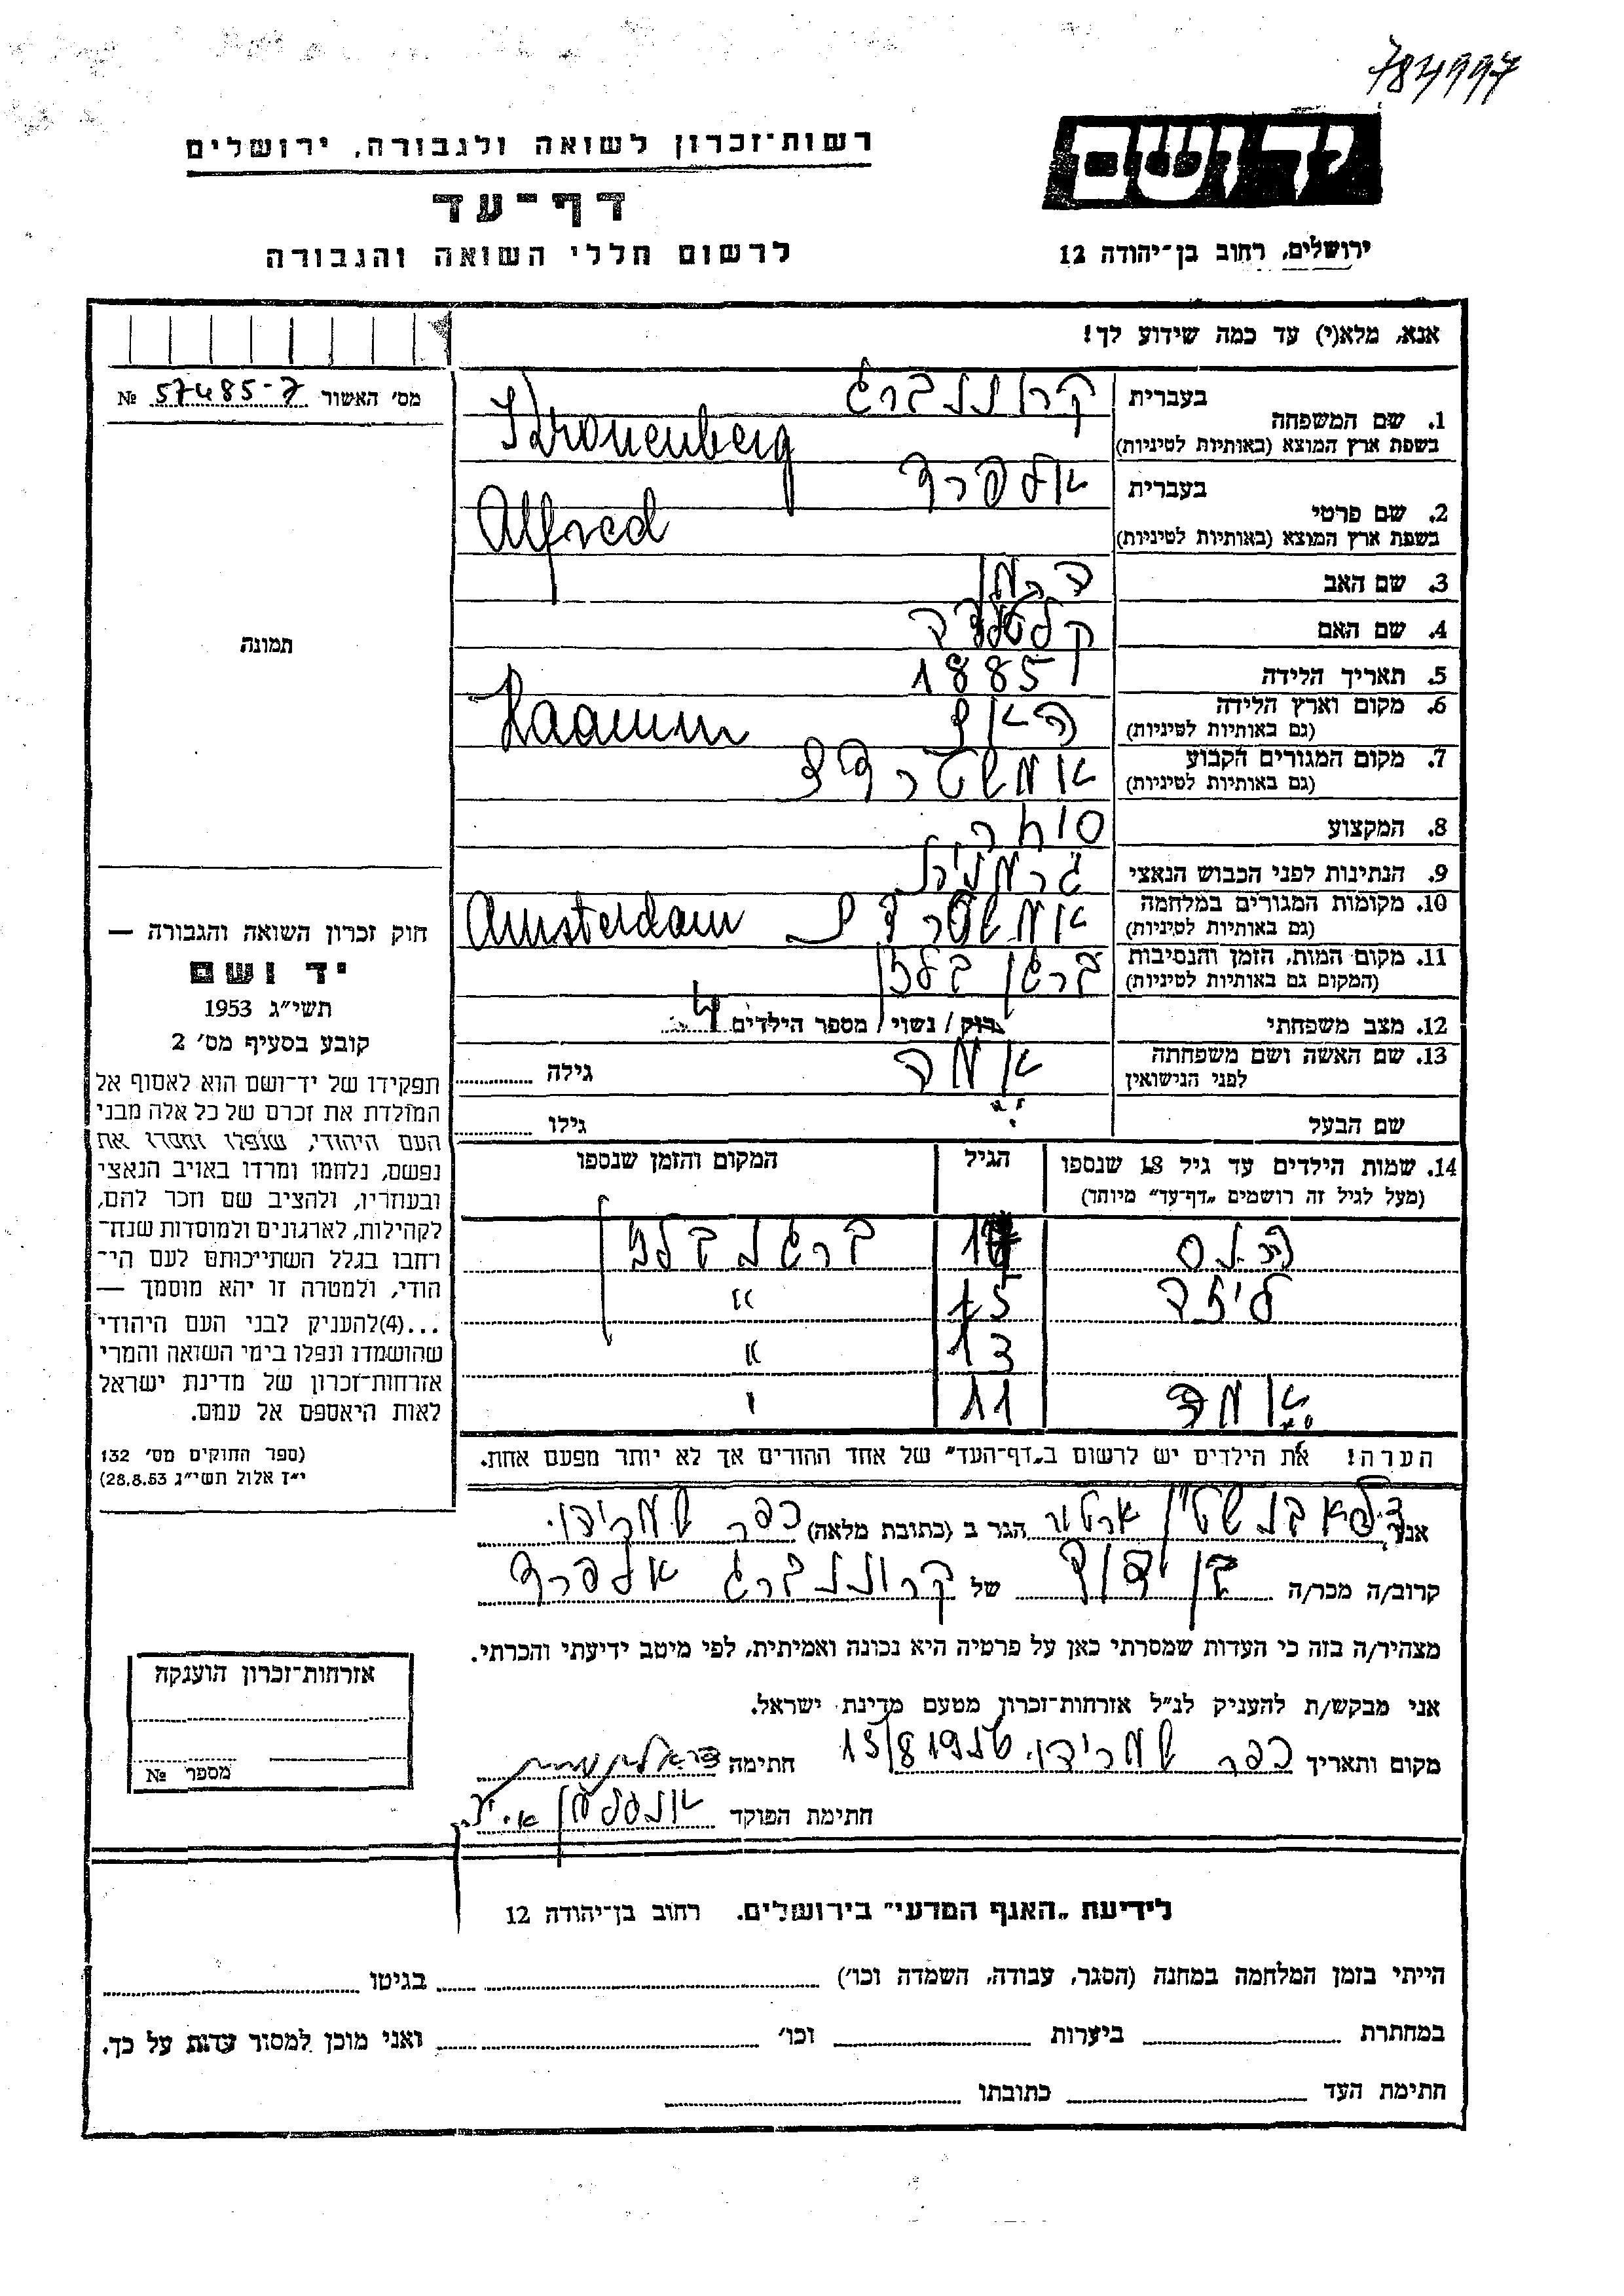 784997
יד ושם
רשות־זכרון לשואה ולגבורה, ירושלים
דף־עד
לרשום חללי השואה והגבורה
ירושלים, רחוב בן־יהודה 12
אנא, מלא(י) עד כמה שידוע לך!
מס׳ האשור 57485-7 №
1. שם המשפחה בעברית קרוננברג
בשפת ארץ המוצא (באותיות לטיניות) Kronenberg
2. שם פרטי בעברית אלפרד
בשפת ארץ המוצא (באותיות לטיניות) Alfred
3. שם האב הרמן
4. שם האם
5. תאריך הלידה 1885
6. מקום וארץ הלידה
(גם באותיות לטיניות)
7. מקום המגורים הקבוע אמשטרדם
(גם באותיות לטיניות)
8. המקצוע סוחר
9. הנתינות לפני הכבוש הנאצי גרמנית
10. מקומות המגורים במלחמה אמשטרדם Amsterdam
(גם באותיות לטיניות)
11. מקום המות, הזמן והנסיבות ברגן בלזן
(המקום גם באותיות לטיניות)
12. מצב משפחתי רוק / נשוי / מספר הילדים 4
13. שם האשה ושם משפחתה אמה גילה
לפני הנישואין
שם הבעל גילו
תמונה
14. שמות הילדים עד גיל 18 שנספו הגיל המקום והזמן שנספו
(מעל לגיל זה רושמים „דף־עד״ מיוחד)
ברגן בלזן
ליזה 15 "
13 "
אמה 11 "
הערה! את הילדים יש לרשום ב„דף־העד״ של אחד ההורים אך לא יותר מפעם אחת.
חוק זכרון השואה והגבורה —
יד ושם
תשי״ג 1953
קובע בסעיף מס׳ 2
תפקידו של יד־ושם הוא לאסוף אל
המולדת את זכרם של כל אלה מבני
העם היהודי, שנפלו ומסרו את
נפשם, נלחמו ומרדו באויב הנאצי
ובעוזריו, ולהציב שם וזכר להם,
לקהילות, לארגונים ולמוסדות שנח־
רחבו בגלל השתייכותם לעם הי־
הודי, ולמטרה זו יהא מוסמך —
...(4)להעניק לבני העם היהודי
שהושמדו ונפלו בימי השואה והמרי
אזרחות־זכרון של מדינת ישראל
לאות היאספם אל עמם.
(ספר החוקים מס׳ 132
י״ז אלול תשי״ג 28.8.53)
אני, הגר ב (כתובת מלאה) כפר שמריהו
קרוב/ה מכר/ה בן דוד של קרוננברג אלפרד
מצהיר/ה בזה כי העדות שמסרתי כאן על פרטיה היא נכונה ואמיתית, לפי מיטב ידיעתי והכרתי.
אני מבקש/ת להעניק לנ״ל אזרחות־זכרון מטעם מדינת ישראל.
מקום ותאריך כפר שמריהו חתימה
חתימת הפוקד
אזרחות־זכרון הוענקה
מספר №
לידיעת „האגף המדעי״ בירושלים. רחוב בן־יהודה 12
הייתי בזמן המלחמה במחנה (הסגר, עבודה, השמדה וכו׳) בגיטו
במחתרת ביערות וכו׳ ואני מוכן למסור עדות על כך.
חתימת העד כתובתו